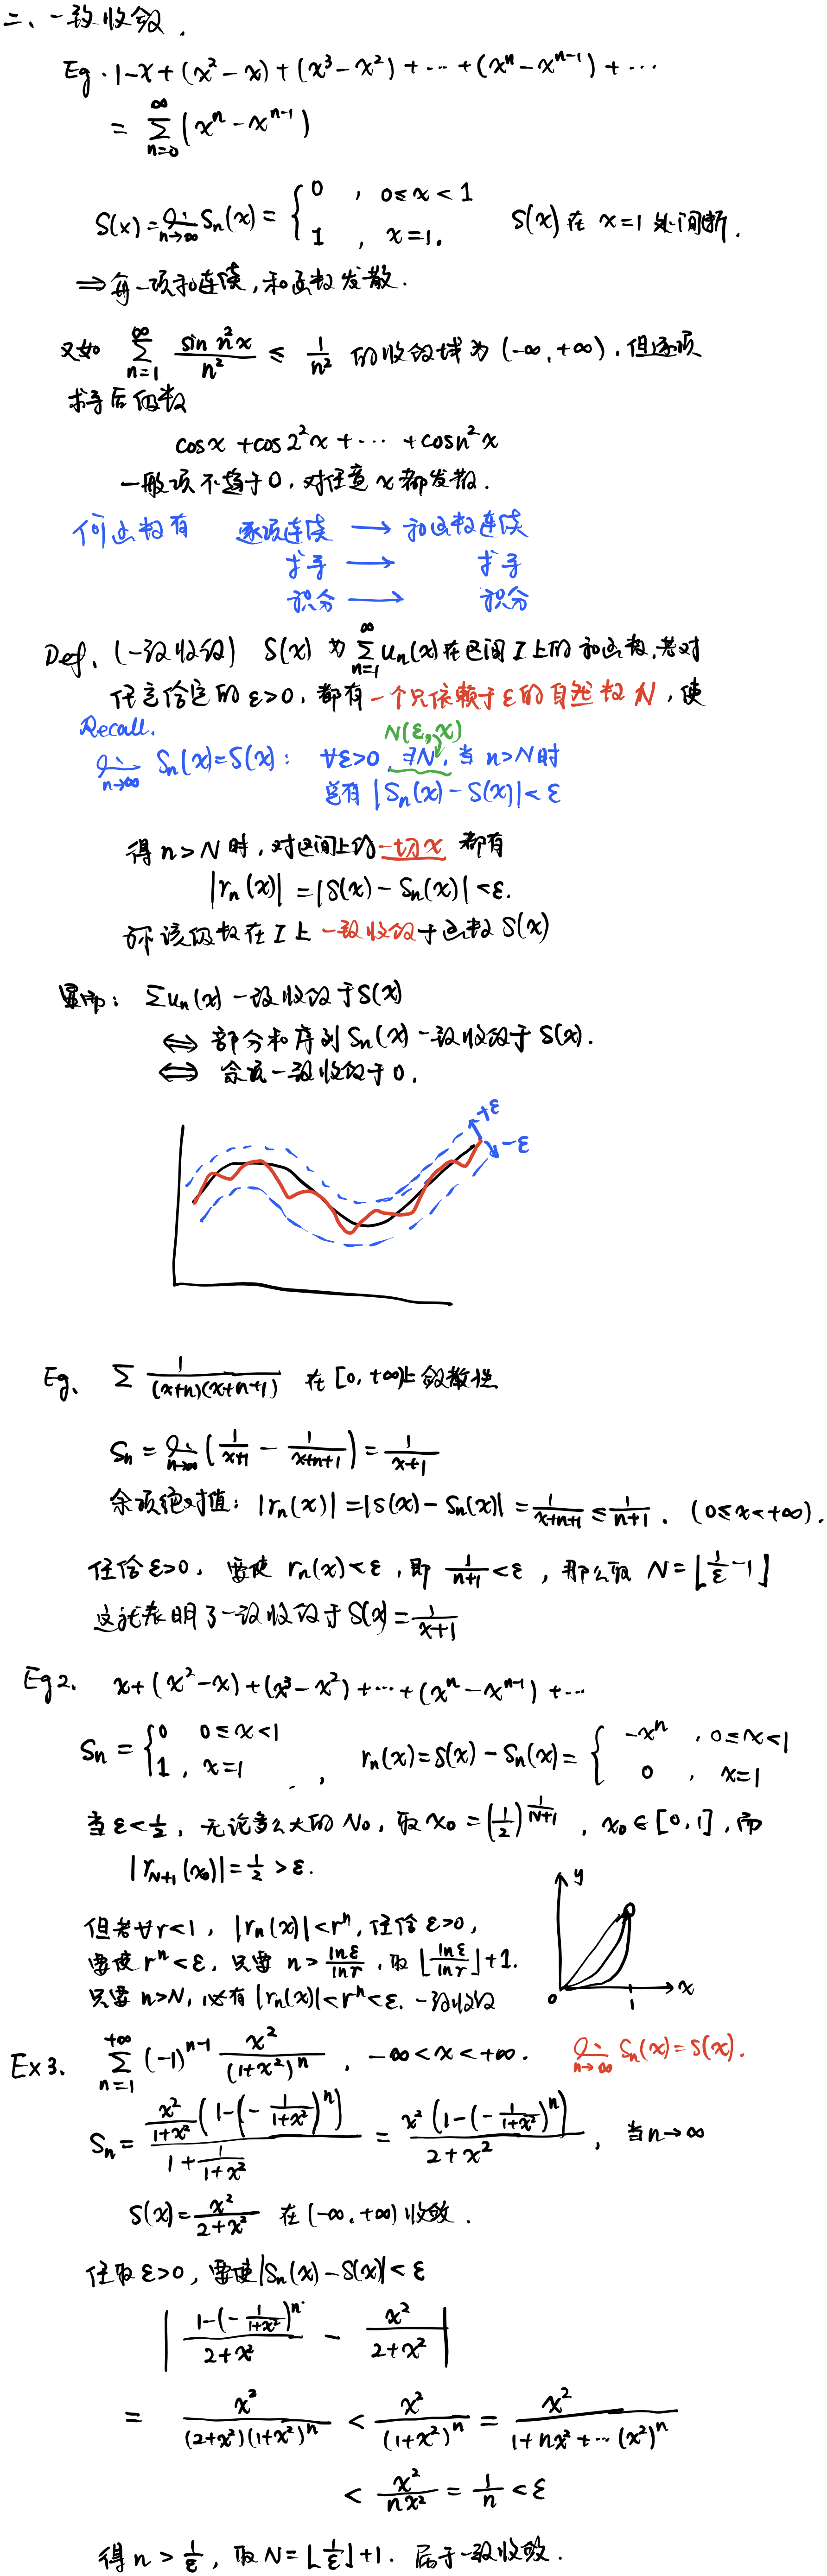 二、一致收敛.
Eg. 1-x+(x²-x)+(x³-x²)+⋯+(xⁿ-xⁿ⁻¹)+⋯
= ∑_{n=0}^{∞}(xⁿ-xⁿ⁻¹)
S(x)=lim_{n→∞} Sₙ(x)= { 0 , 0≤x<1 ; 1 , x=1. S(x) 在 x=1 处间断.
⇒ 每一项和连续,和函数发散.
又如 ∑_{n=1}^{∞} sin n²x / n² ≤ 1/n² 的收敛域为 (-∞,+∞),但逐项
求导后级数
cosx+cos2²x+⋯+cosn²x
一般项不趋于0,对任意x都发散.
何函数有 逐项连续 → 和函数连续
求导 → 求导
积分 → 积分
Def. (一致收敛) S(x) 为 ∑_{n=1}^{∞} uₙ(x) 在区间 I 上的和函数,若对
任意给定的 ε>0,都有一个只依赖于 ε 的自然数 N,使
Recall. N(ε,x)
lim_{n→∞} Sₙ(x)=S(x): ∀ε>0,∃N,当 n>N 时
总有 |Sₙ(x)-S(x)|<ε
得 n>N 时,对区间上的一切x 都有
|rₙ(x)|=|S(x)-Sₙ(x)|<ε.
称该级数在 I 上 一致收敛于函数 S(x)
显而: ∑uₙ(x) 一致收敛于S(x)
⇔ 部分和序列 Sₙ(x) 一致收敛于 S(x).
⇔ 余项一致收敛于0.
+ε
-ε
Eg. ∑ 1/((x+n)(x+n+1)) 在 [0,+∞)上敛散性
Sₙ = lim_{n→∞} (1/(x+1) - 1/(x+n+1)) = 1/(x+1)
余项绝对值: |rₙ(x)|=|S(x)-Sₙ(x)|=1/(x+n+1) ≤ 1/(n+1). (0≤x<+∞).
任给 ε>0, 要使 rₙ(x)<ε,即 1/(n+1)<ε,那么取 N=⌊1/ε-1⌋
这就表明了一致收敛于 S(x)=1/(x+1)
Eg2. x+(x²-x)+(x³-x²)+⋯+(xⁿ-xⁿ⁻¹)+⋯
Sₙ = { 0 0≤x<1 ; 1 , x=1 , rₙ(x)=S(x)-Sₙ(x)= { -xⁿ , 0≤x<1 ; 0 , x=1
当 ε<1/2, 无论多么大的 N₀,取 x₀=(1/2)^{1/(N+1)}, x₀∈[0,1],而
|r_{N+1}(x₀)|=1/2>ε.
y
但若∀r<1, |rₙ(x)|<rⁿ,任给 ε>0,
要使 rⁿ<ε,只要 n>lnε/lnr,取 ⌊lnε/lnr⌋+1.
只要 n>N,必有 |rₙ(x)|<rⁿ<ε. 一致收敛
0 1 x
Ex3. ∑_{n=1}^{+∞} (-1)ⁿ⁻¹ x²/(1+x²)ⁿ, -∞<x<+∞. lim_{n→∞} Sₙ(x)=S(x).
Sₙ = (x²/(1+x²) (1-(-1/(1+x²))ⁿ)) / (1+1/(1+x²)) = x²(1-(-1/(1+x²))ⁿ) / (2+x²), 当n→∞
S(x)=x²/(2+x²) 在(-∞,+∞)收敛.
任取 ε>0,要使|Sₙ(x)-S(x)|<ε
| (1-(-1/(1+x²))ⁿ)/(2+x²) - x²/(2+x²) |
= x²/((2+x²)(1+x²)ⁿ) < x²/(1+x²)ⁿ = x²/(1+nx²+⋯(x²)ⁿ)
< x²/(nx²) = 1/n < ε
得 n>1/ε,取 N=⌊1/ε⌋+1. 属于一致收敛.